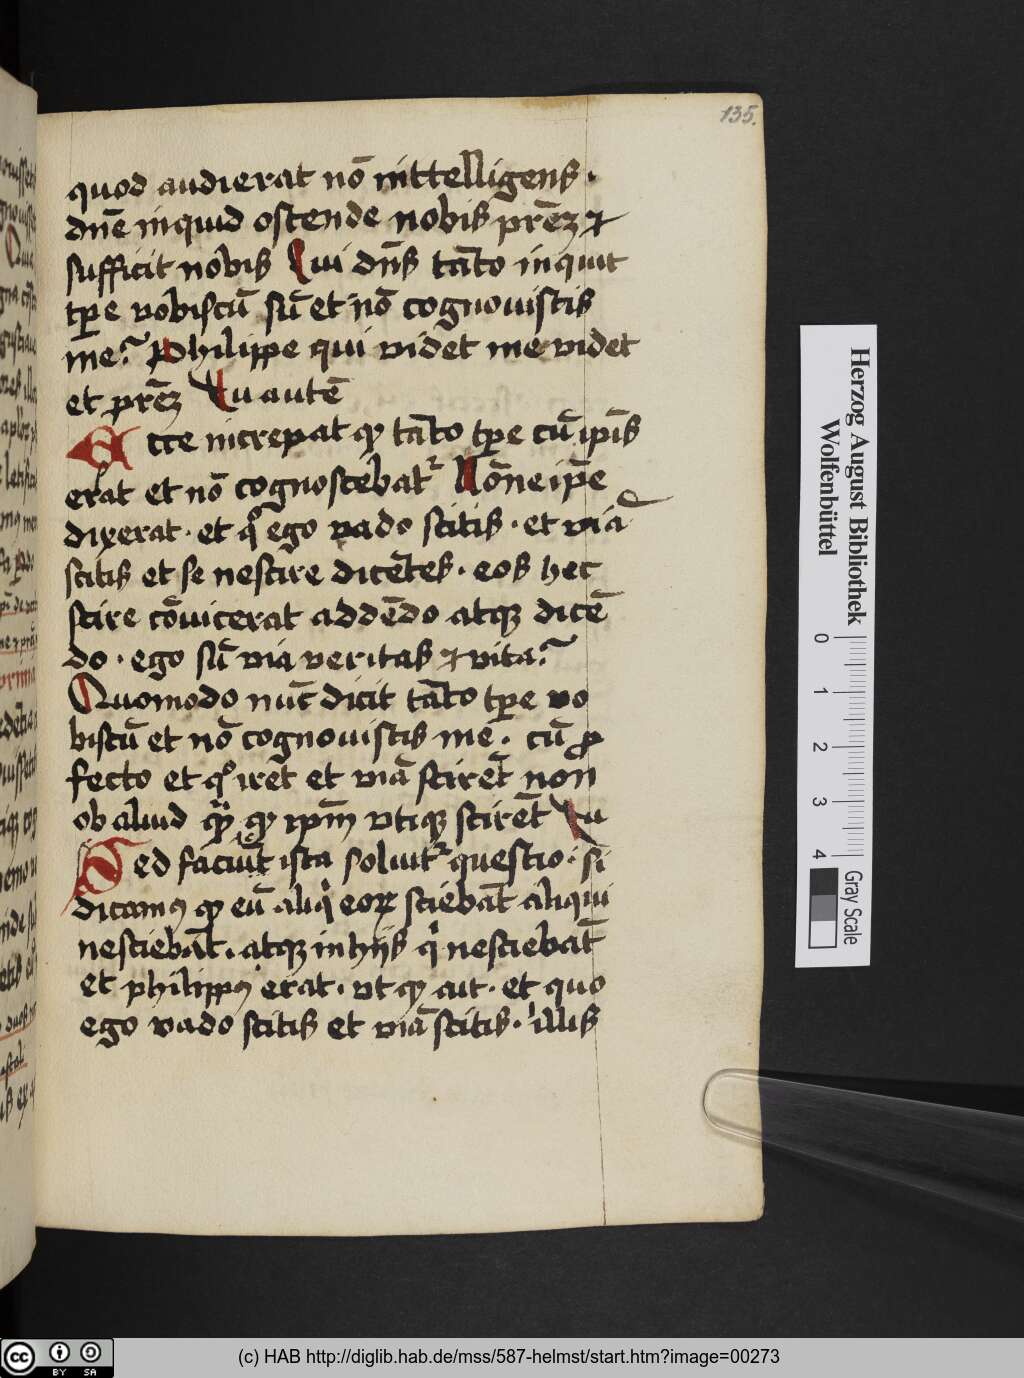 135.
quod audierat nō inttelligens.
dn̄e inquid ostende nobis prēꝫ ⁊
sufficit nobis Cui dn̄s tāto inquit
tꝑe vobiscū sū et nō cognouistis
me? Philippe qui videt me videt
et prēꝫ Tu autē
Ecce increpat qꝫ tāto tꝑe cū ip̄is
erat et nō cognoscebatr Nōne ip̄e
dixerat. et qͦ ego vado scitis. et viā
scitis et se nescire dicētes. eos hec
scire cōuicerat addēdo atqꝫ dicē
do. ego sū via veritas ⁊ vita?
Quomodo nūc dicit tāto tꝑe vo
biscū et nō cognouistis me. cū ꝓ
fecto et qͦ irēt et viā scirēt non
ob aliud qꝫ̄ qꝫ ip̄m vtiqꝫ scirēt Tu
Sed faciūt ista soluitr questio. si
dicamꝰ qꝫ eū aliqͥ eoꝝ sciebāt aliqui
nesciebāt. atqꝫ in hijs qͥ nesciebāt
et philippꝰ erat. vt qꝫ ait. et quo
ego vado scitis et viā scitis. illis
Herzog August Bibliothek
Wolfenbüttel
0
1
2
3
4
Gray Scale
cc BY SA
(c) HAB http://diglib.hab.de/mss/587-helmst/start.htm?image=00273